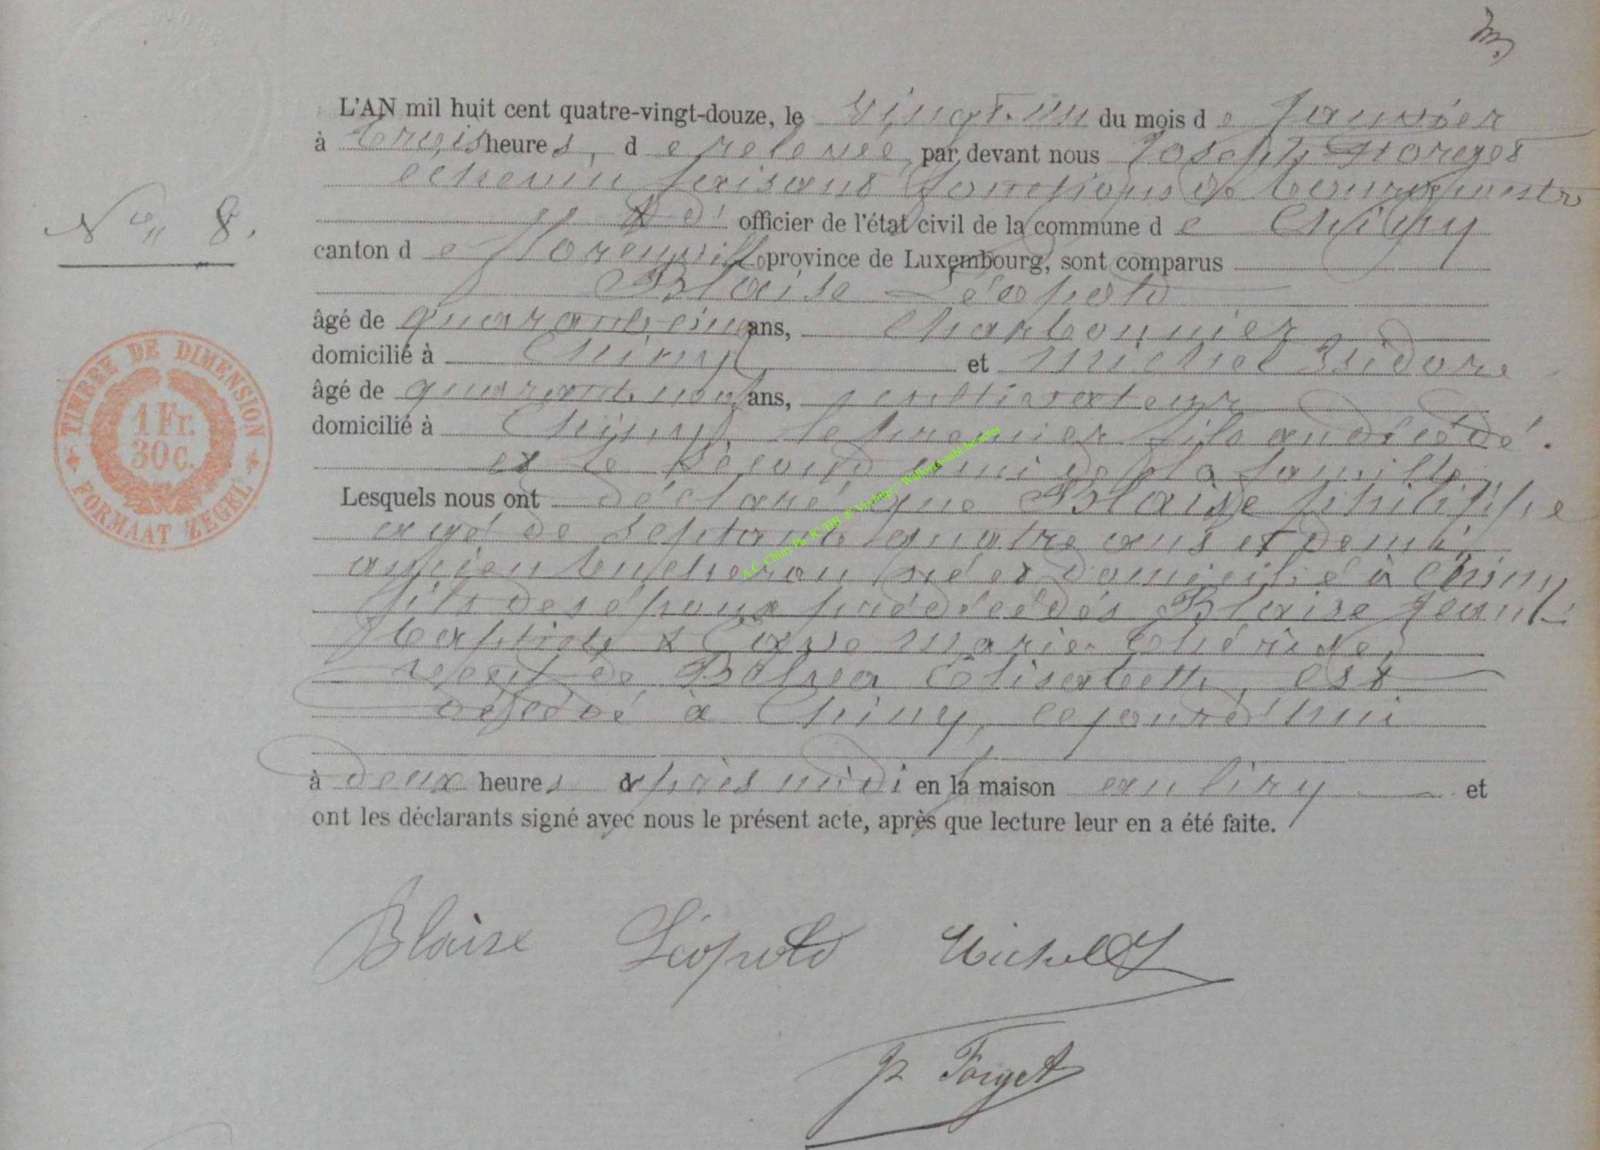 L'AN mil huit cent quatre-vingt-douze, le vingt-un du mois de Janvier
à trois heures, de relevée, par devant nous Joseph Forget
échevin faisant fonctions de bourgmestre
officier de l'état civil de la commune de Chiny
canton de Florenville province de Luxembourg, sont comparus
Blaise Léopold
âgé de quarante cinq ans, charbonnier
domicilié à Chiny et Michel Isidore
âgé de quarante neuf ans, cultivateur
domicilié à Chiny, le premier fils au décédé.
et le second ami de la famille
Lesquels nous ont déclaré que Blaise philippe
agé de septante quatre ans et demi
ancien bucheron né et domicilié à Chiny
fils des époux prédécédés Blaise Jean
baptiste & marie thérèse
veuf de Elisabeth, est
décédé à Chiny, cejourd'hui
à deux heures après midi en la maison et
ont les déclarants signé avec nous le présent acte, après que lecture leur en a été faite.
N° 8.
TIMBRE DE DIMENSION
1 Fr.
30 c.
FORMAAT ZEGEL
Blaise Léopold Michel
Forget